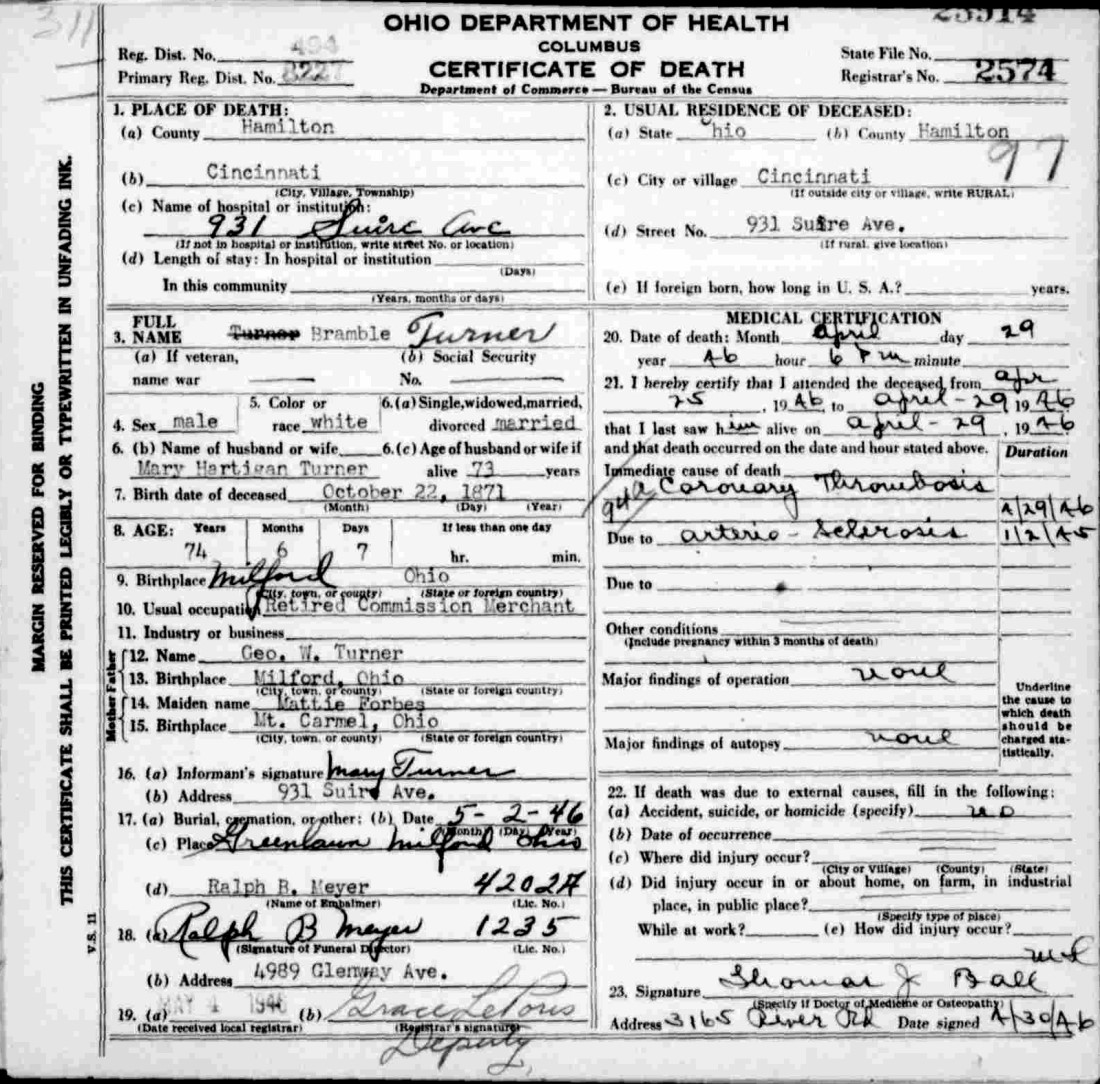 311
OHIO DEPARTMENT OF HEALTH
COLUMBUS
CERTIFICATE OF DEATH
Department of Commerce — Bureau of the Census
Reg. Dist. No. 494
Primary Reg. Dist. No. 8227
State File No.
Registrar's No. 2574
MARGIN RESERVED FOR BINDING
THIS CERTIFICATE SHALL BE PRINTED LEGIBLY OR TYPEWRITTEN IN UNFADING INK.
V.S. 11
1. PLACE OF DEATH:
(a) County Hamilton
(b) Cincinnati
(City, Village, Township)
(c) Name of hospital or institution:
931 Suire Ave
(If not in hospital or institution, write street No. or location)
(d) Length of stay: In hospital or institution
(Days)
In this community
(Years, months or days)
2. USUAL RESIDENCE OF DECEASED:
(a) State Ohio (b) County Hamilton
97
(c) City or village Cincinnati
(If outside city or village, write RURAL)
(d) Street No. 931 Suire Ave.
(If rural, give location)
(e) If foreign born, how long in U. S. A.? years.
3. FULL NAME Turner Bramble Turner
(a) If veteran, name war
(b) Social Security No.
4. Sex male
5. Color or race white
6. (a) Single, widowed, married, divorced married
6. (b) Name of husband or wife
Mary Hartigan Turner
6. (c) Age of husband or wife if
alive 73 years
7. Birth date of deceased October 22, 1871
(Month) (Day) (Year)
8. AGE: Years Months Days If less than one day
74 6 7 hr. min.
9. Birthplace Milford Ohio
(City, town, or county) (State or foreign country)
10. Usual occupation Retired Commission Merchant
11. Industry or business
Father
12. Name Geo. W. Turner
13. Birthplace Milford, Ohio
(City, town, or county) (State or foreign country)
Mother
14. Maiden name Mattie Forbes
15. Birthplace Mt. Carmel, Ohio
(City, town, or county) (State or foreign country)
16. (a) Informant's signature Mary Turner
(b) Address 931 Suire Ave.
17. (a) Burial, cremation, or other: (b) Date 5-2-46
(Month) (Day) (Year)
(c) Place Greenlawn Milford Ohio
(d) Ralph B. Meyer 4202A
(Name of Embalmer) (Lic. No.)
18. (a) Ralph B Meyer 1235
(Signature of Funeral Director) (Lic. No.)
(b) Address 4989 Glenway Ave.
19. (a) MAY 4 1946 (b) Grace
(Date received local registrar) (Registrar's signature)
Deputy
MEDICAL CERTIFICATION
20. Date of death: Month April day 29
year 46 hour 6 P m minute
21. I hereby certify that I attended the deceased from apr
25, 1946, to april-29 1946
that I last saw him alive on april-29, 1946
and that death occurred on the date and hour stated above.
Duration
Immediate cause of death
94a Coronary Thrombosis
4/29/46
Due to arterio-sclerosis 1/2/45
Due to
Other conditions
(Include pregnancy within 3 months of death)
Major findings of operation none
Major findings of autopsy none
Underline
the cause to
which death
should be
charged sta-
tistically.
22. If death was due to external causes, fill in the following:
(a) Accident, suicide, or homicide (specify) no
(b) Date of occurrence
(c) Where did injury occur?
(City or Village) (County) (State)
(d) Did injury occur in or about home, on farm, in industrial
place, in public place?
(Specify type of place)
While at work? (e) How did injury occur?
23. Signature Thomas J Ball
(Specify if Doctor of Medicine or Osteopathy)
Address 3165 River Rd Date signed 4/30/46